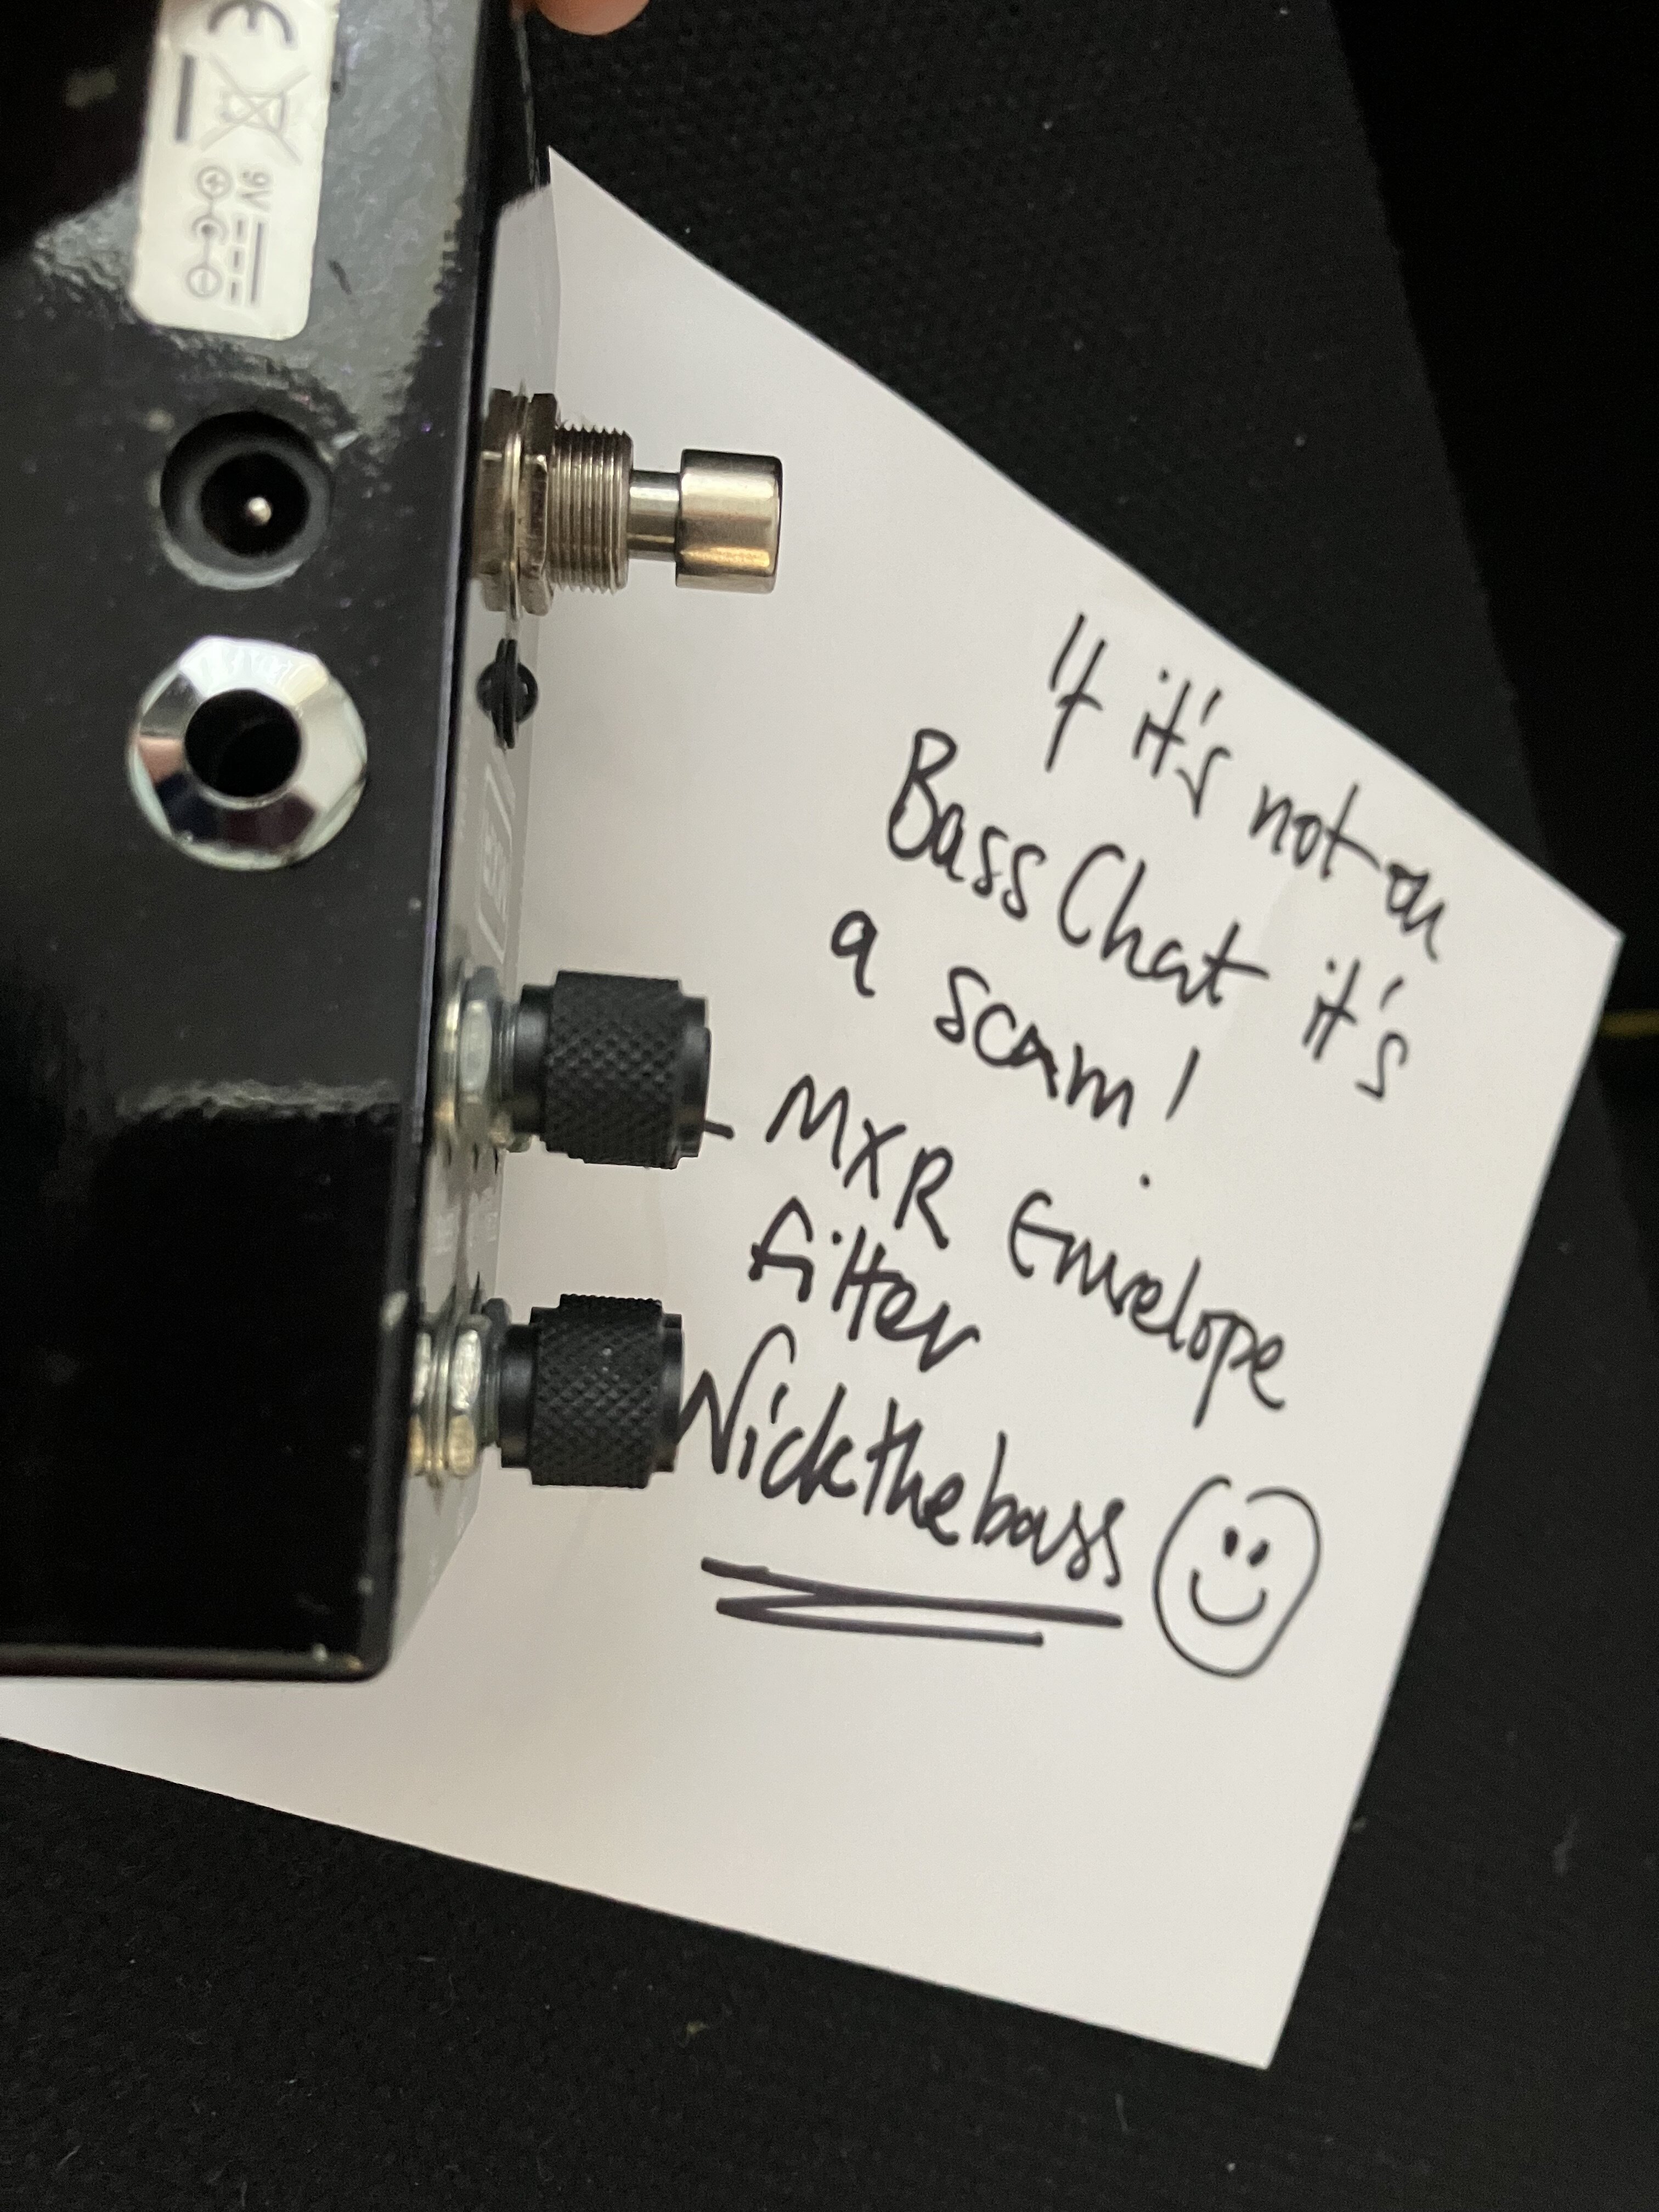 CE
9V
If it's not on
BassChat it's
a scam!
- MXR Envelope
filter
Nickthebass